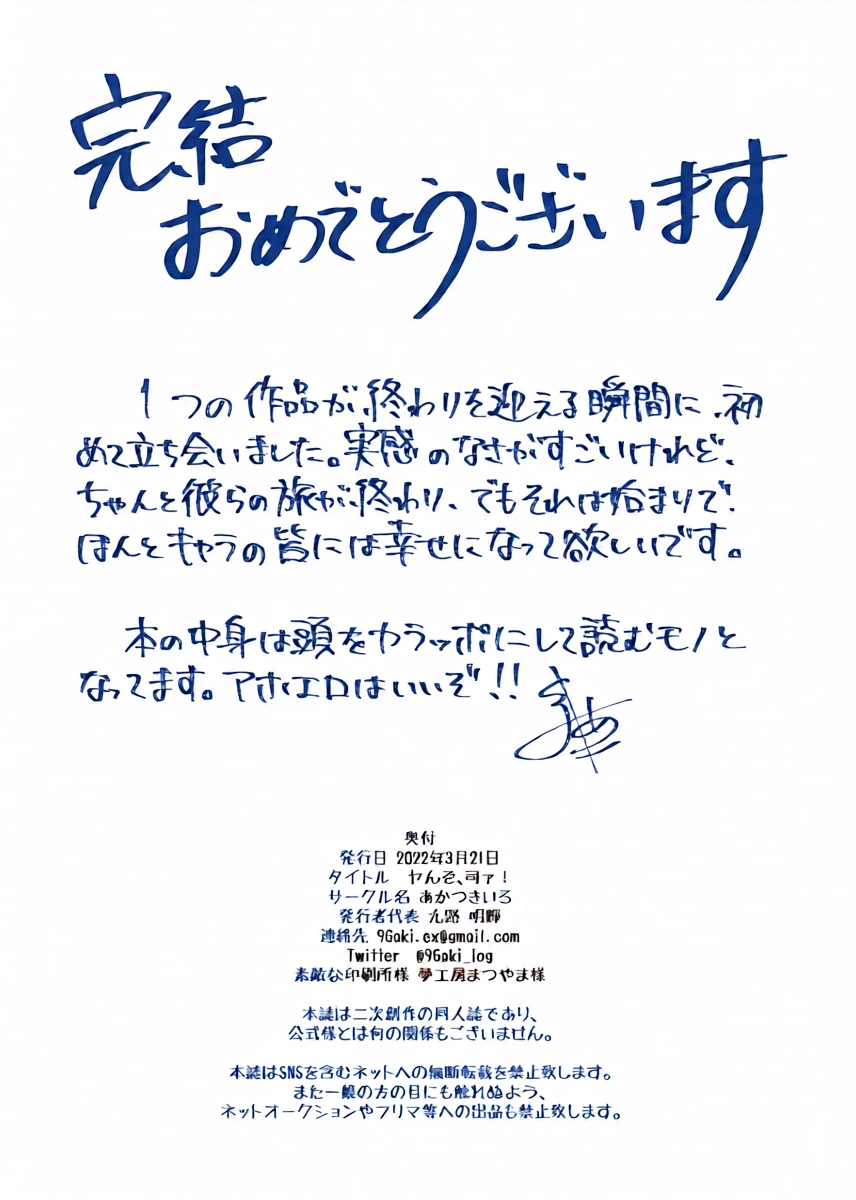 完結
おめでとうございます
1つの作品が終わりを迎える瞬間に、初
めて立ち会いました。実感のなさがすごいけれど、
ちゃんと彼らの旅が終わり、でもそれは始まりで!
ほんとキャラの皆には幸せになって欲しいです。
本の中身は頭をカラッポにして読むモノと
なってます。アホエロはいいぞ!!
奥付
発行日 2022年3月21日
タイトル ヤんぞ、司ァ!
サークル名 あかつきいろ
発行者代表 九路 明輝
連絡先 96aki.ex@gmail.com
Twitter @96aki_log
素敵な印刷所様 夢工房まつやま様
本誌は二次創作の同人誌であり、
公式様とは何の関係もございません。
本誌はSNSを含むネットへの無断転載を禁止致します。
また一般の方の目にも触れぬよう、
ネットオークションやフリマ等への出品も禁止致します。